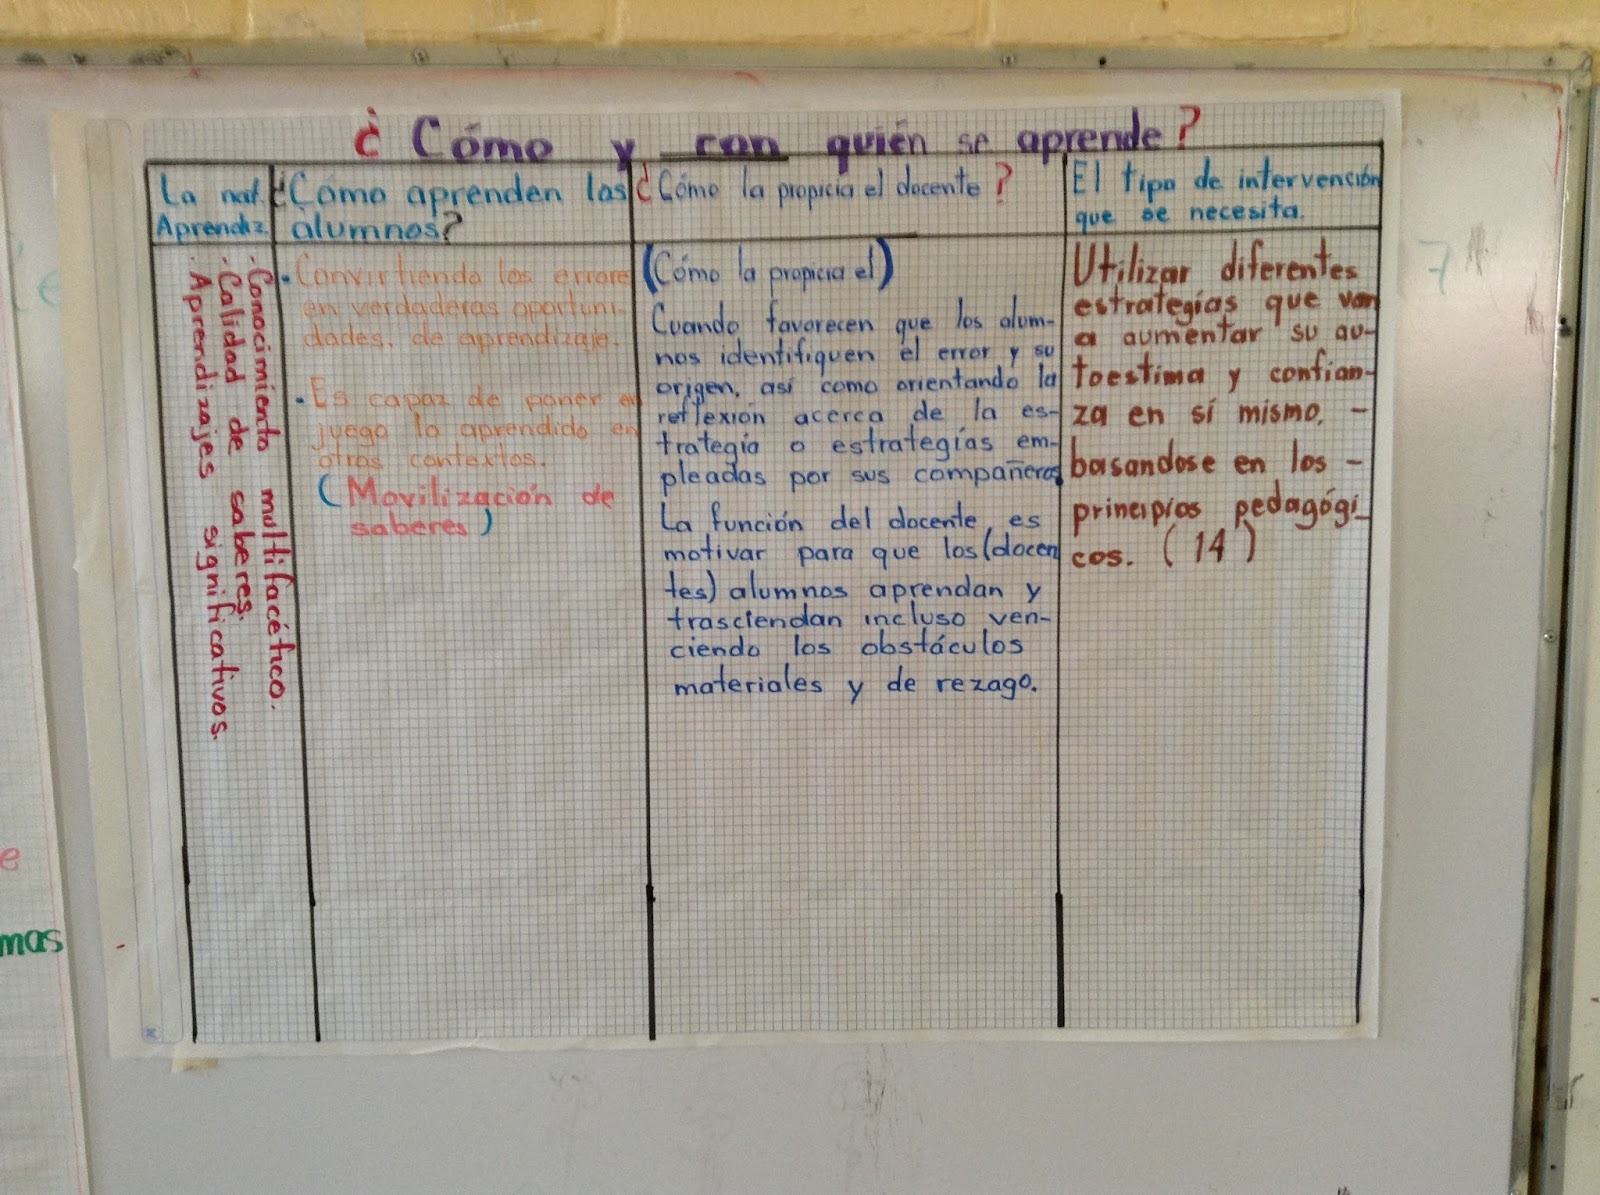 ¿Cómo y con quién se aprende?
La nat.
Aprendiz.
¿Cómo aprenden los
alumnos?
¿Cómo la propicia el docente?
El tipo de intervención
que se necesita.
· Conocimiento multifacético.
· Calidad de saberes.
· Aprendizajes significativos.
• Convirtiendo los errore
en verdaderas oportuni-
dades. de aprendizaje.
• Es capaz de poner en
juego lo aprendido en
otros contextos.
(Movilización de
saberes)
(Cómo la propicia el)
Cuando favorecen que los alum-
nos identifiquen el error y su
origen, así como orientando la
reflexión acerca de la es-
trategia o estrategías em-
pleadas por sus compañeros
La función del docente, es
motivar para que los (docen
tes) alumnos aprendan y
trasciendan incluso ven-
ciendo los obstáculos
materiales y de rezago.
Utilizar diferentes
estrategías que van
a aumentar su au-
toestima y confian-
za en sí mismo, -
basandose en los -
principios pedagógi-
cos. (14)
e
mas
7